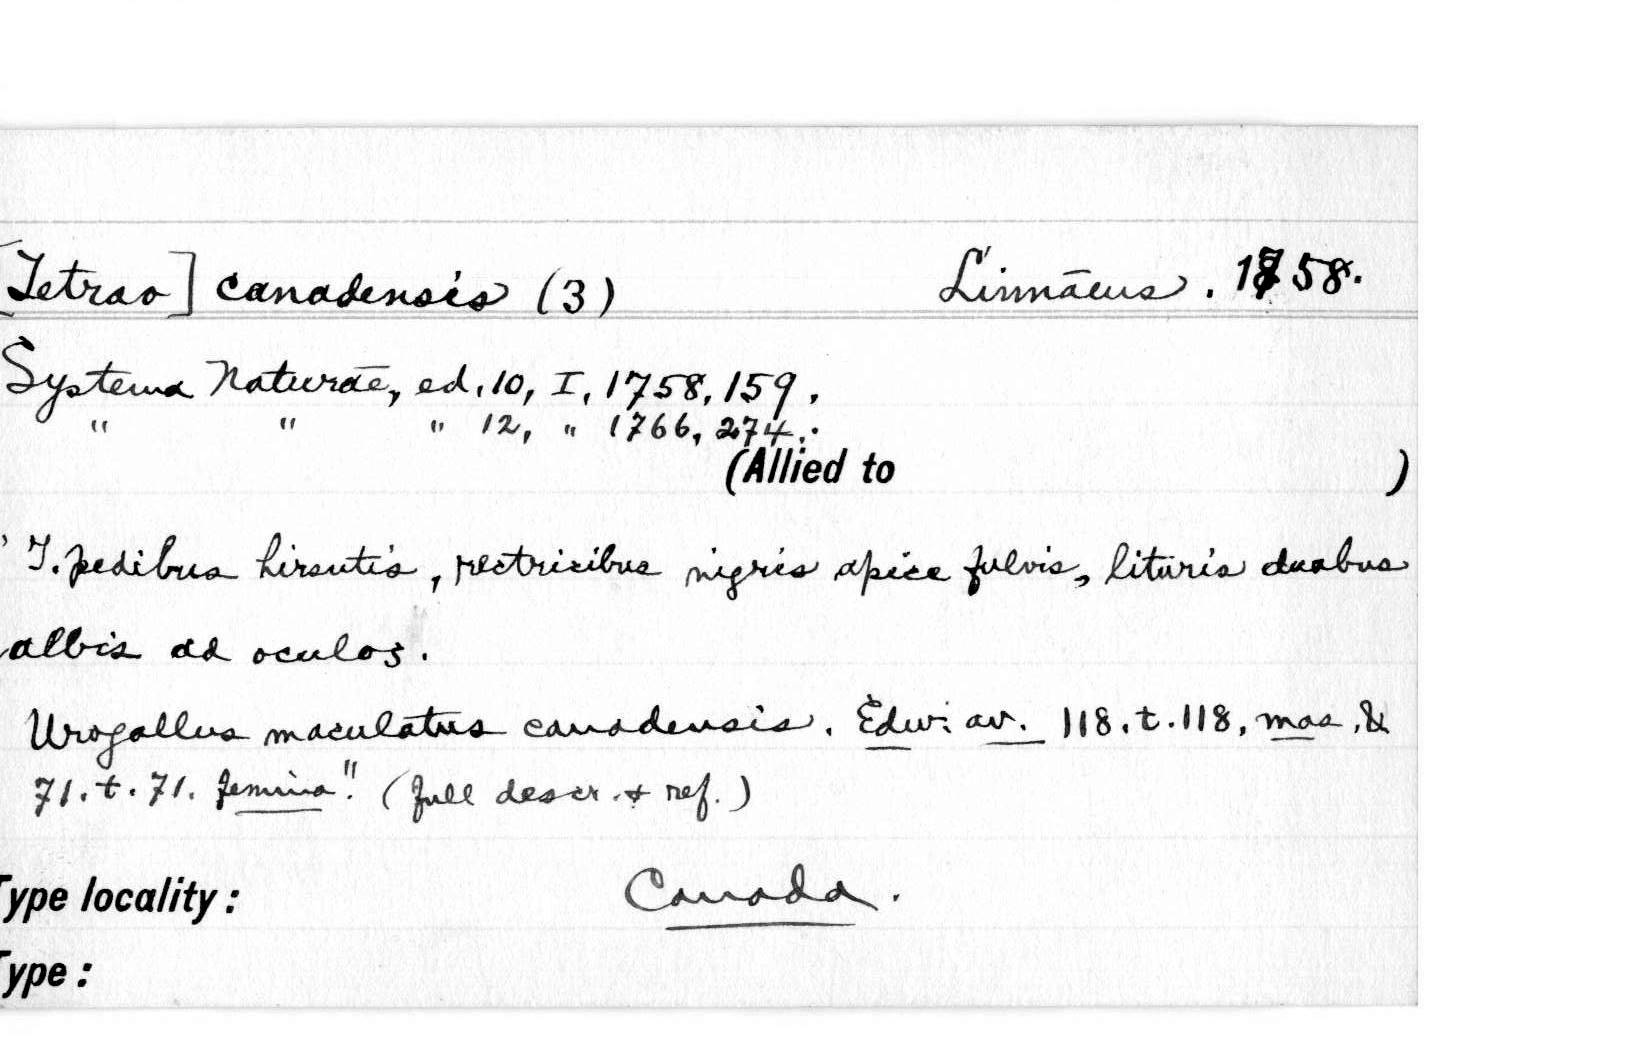 [Tetrao] canadensis (3) Linnāeus. 1758.
Systema Naturāe, ed. 10, I, 1758, 159.
" " " 12, " 1766, 274.
(Allied to )
" T. pedibus hirsutis, rectricibus nigris apice fulvis, lituris duabus
albis ad oculos.
Urogallus maculatus canadensis. Edw. av. 118. t. 118, mas, &
71. t. 71. femina". (full descr. & ref.)
Type locality: Canada.
Type: